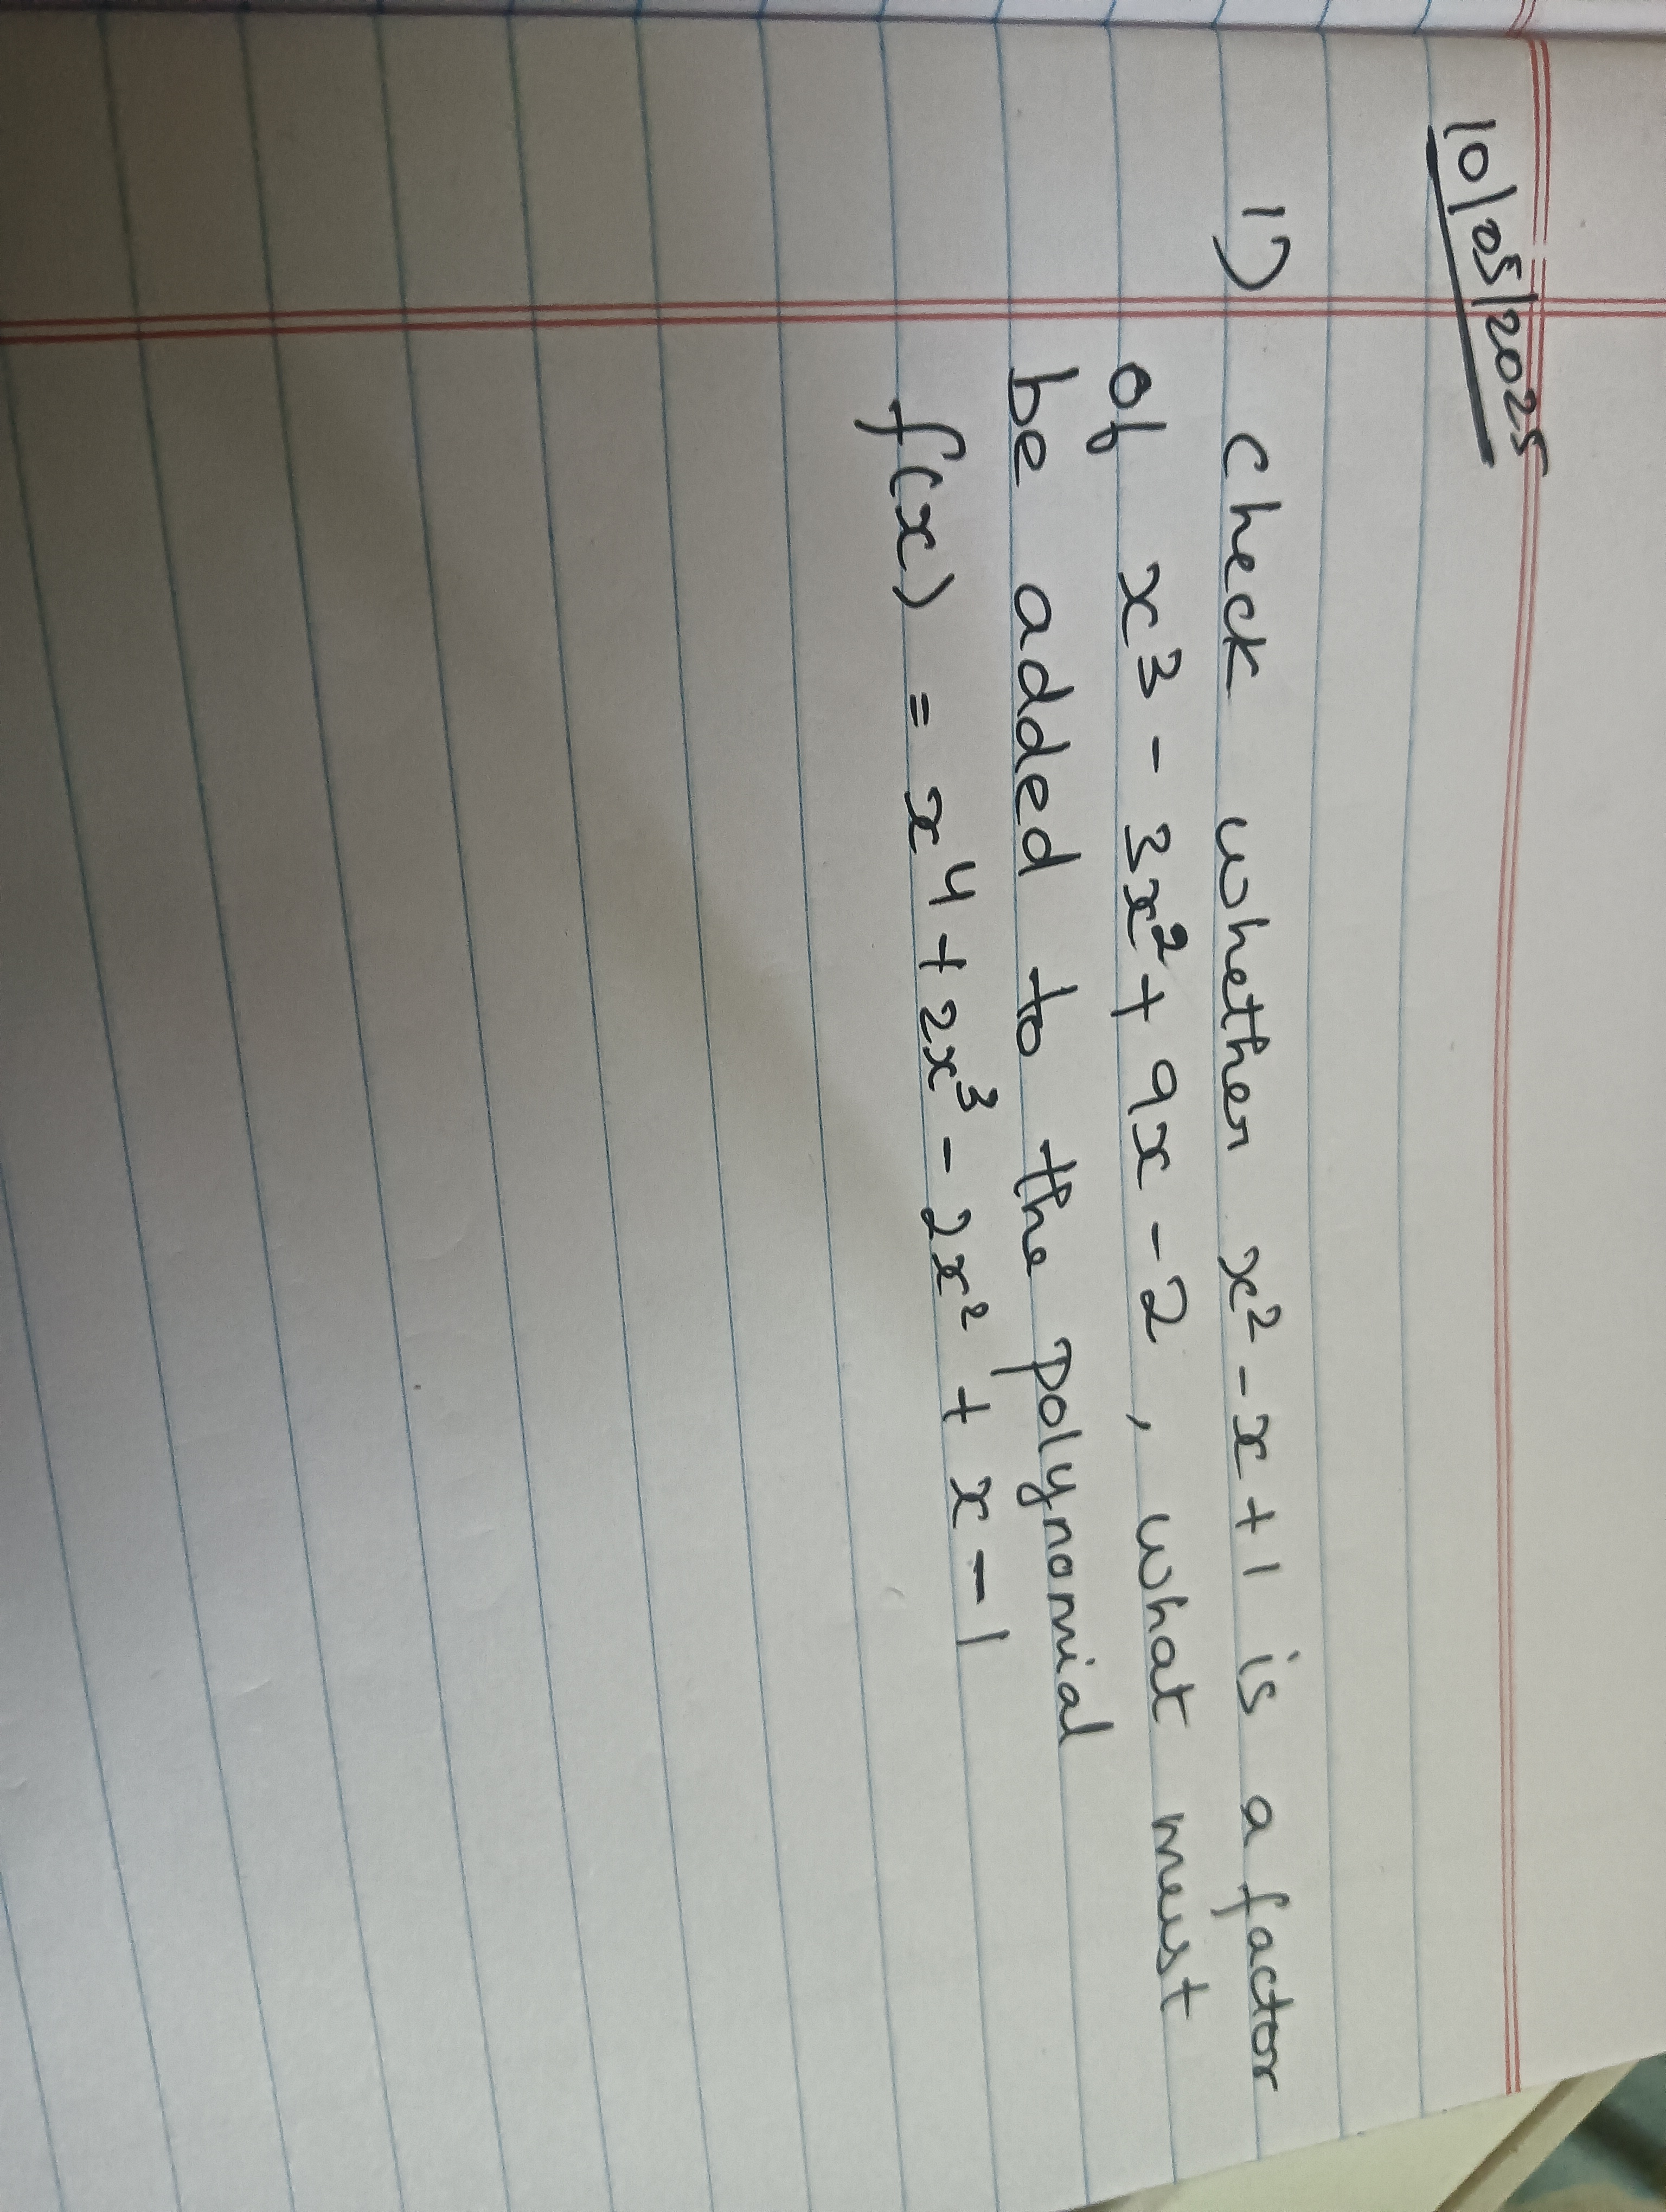 10/05/2025
1) Check whether x² - x + 1 is a factor
of x³ - 3x² + 9x - 2, what must
be added to the polynomial
f(x) = x⁴ + 2x³ - 2x² + x - 1